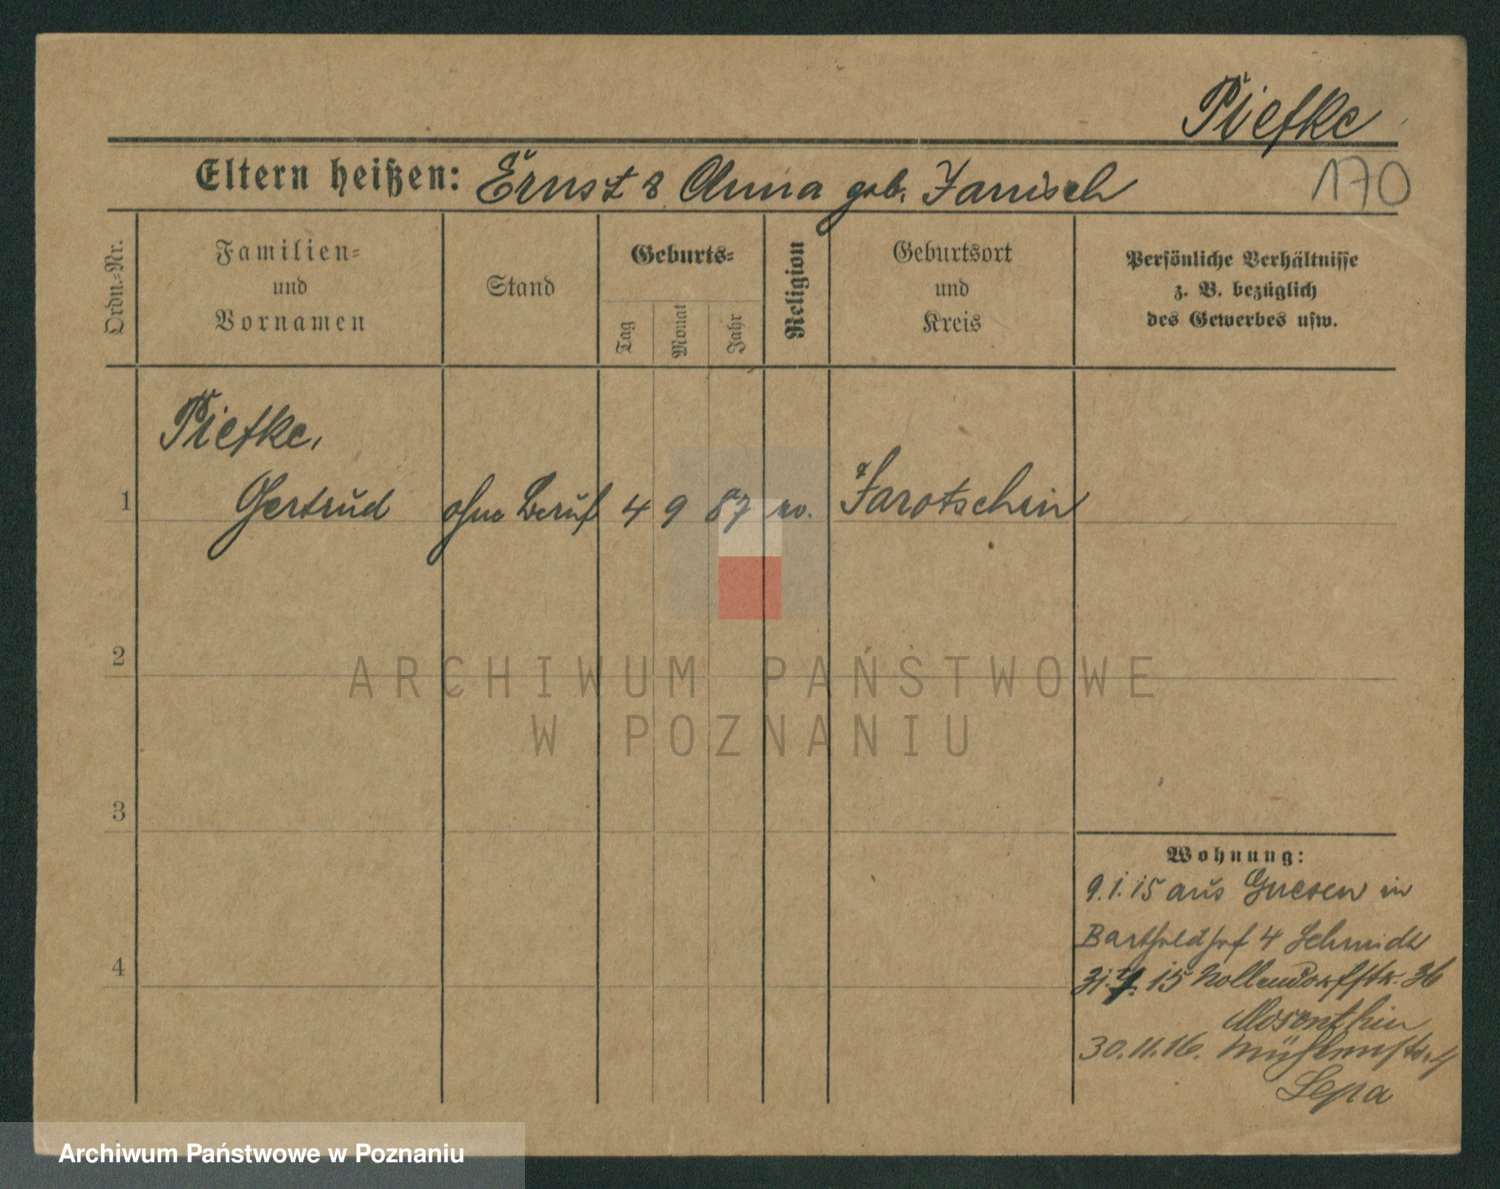 Piefke
170
Eltern heißen: Ernst & Anna geb. Janisch
Ordn.-Nr.
Familien-
und
Vornamen
Stand
Geburts-
Tag
Monat
Jahr
Religion
Geburtsort
und
Kreis
Persönliche Verhältnisse
z. B. bezüglich
des Gewerbes usw.
Piefke,
1 Gertrud ohne Beruf 4 9 87 ev. Jarotschin
2
3
4
ARCHIWUM PAŃSTWOWE
W POZNANIU
Wohnung:
9.1.15 aus Gnesen in
Bartholdhof 4 Schmidt
15 Nollendorfstr. 36
30.11.16. Mühlenstr. 4
Lepa
Archiwum Państwowe w Poznaniu